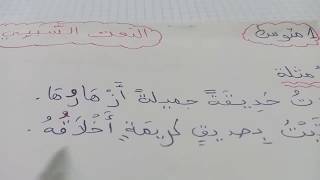 النعت السببي
متوسط
أمثلة
تُ حَدِيقَةً جَمِيلَةً أَزْهَارُهَا.
بْتُ بِصَدِيقٍ كَرِيمَةٍ أَخْلَاقُهُ.